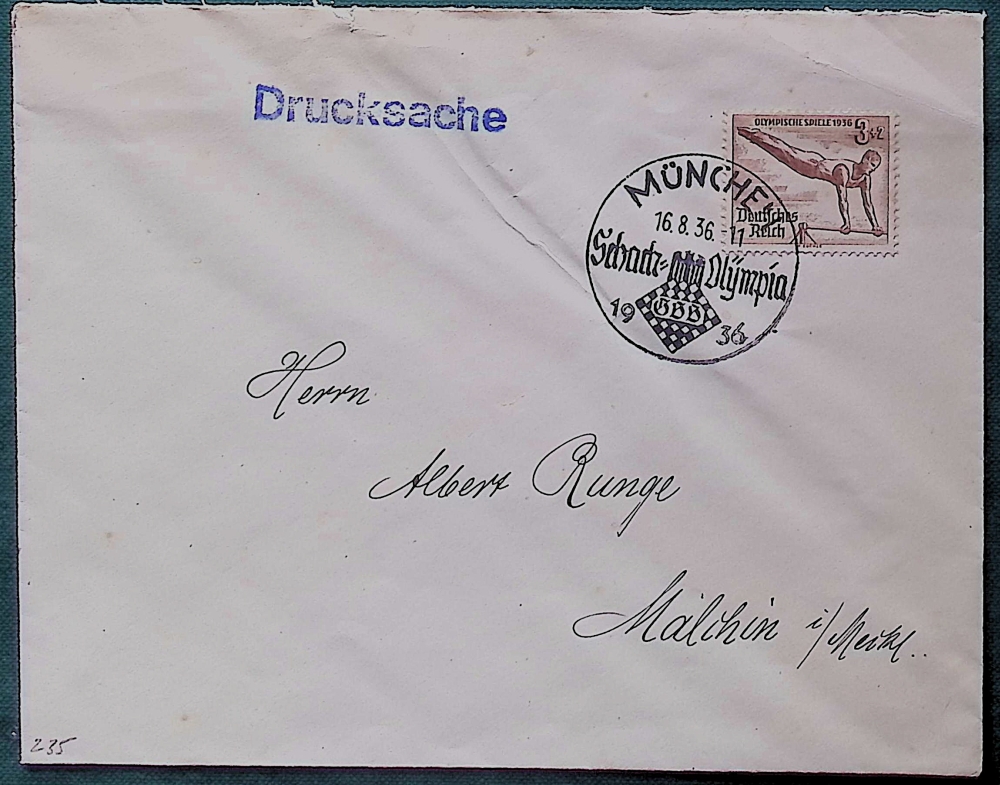 Drucksache
OLYMPISCHE SPIELE 1936 3+2
Deutsches
Reich
MÜNCHEN
16.8.36.-11
Schach- Olympia
GSB
19 36
Herrn
Albert Runge
Malchin i/Meckl.
235